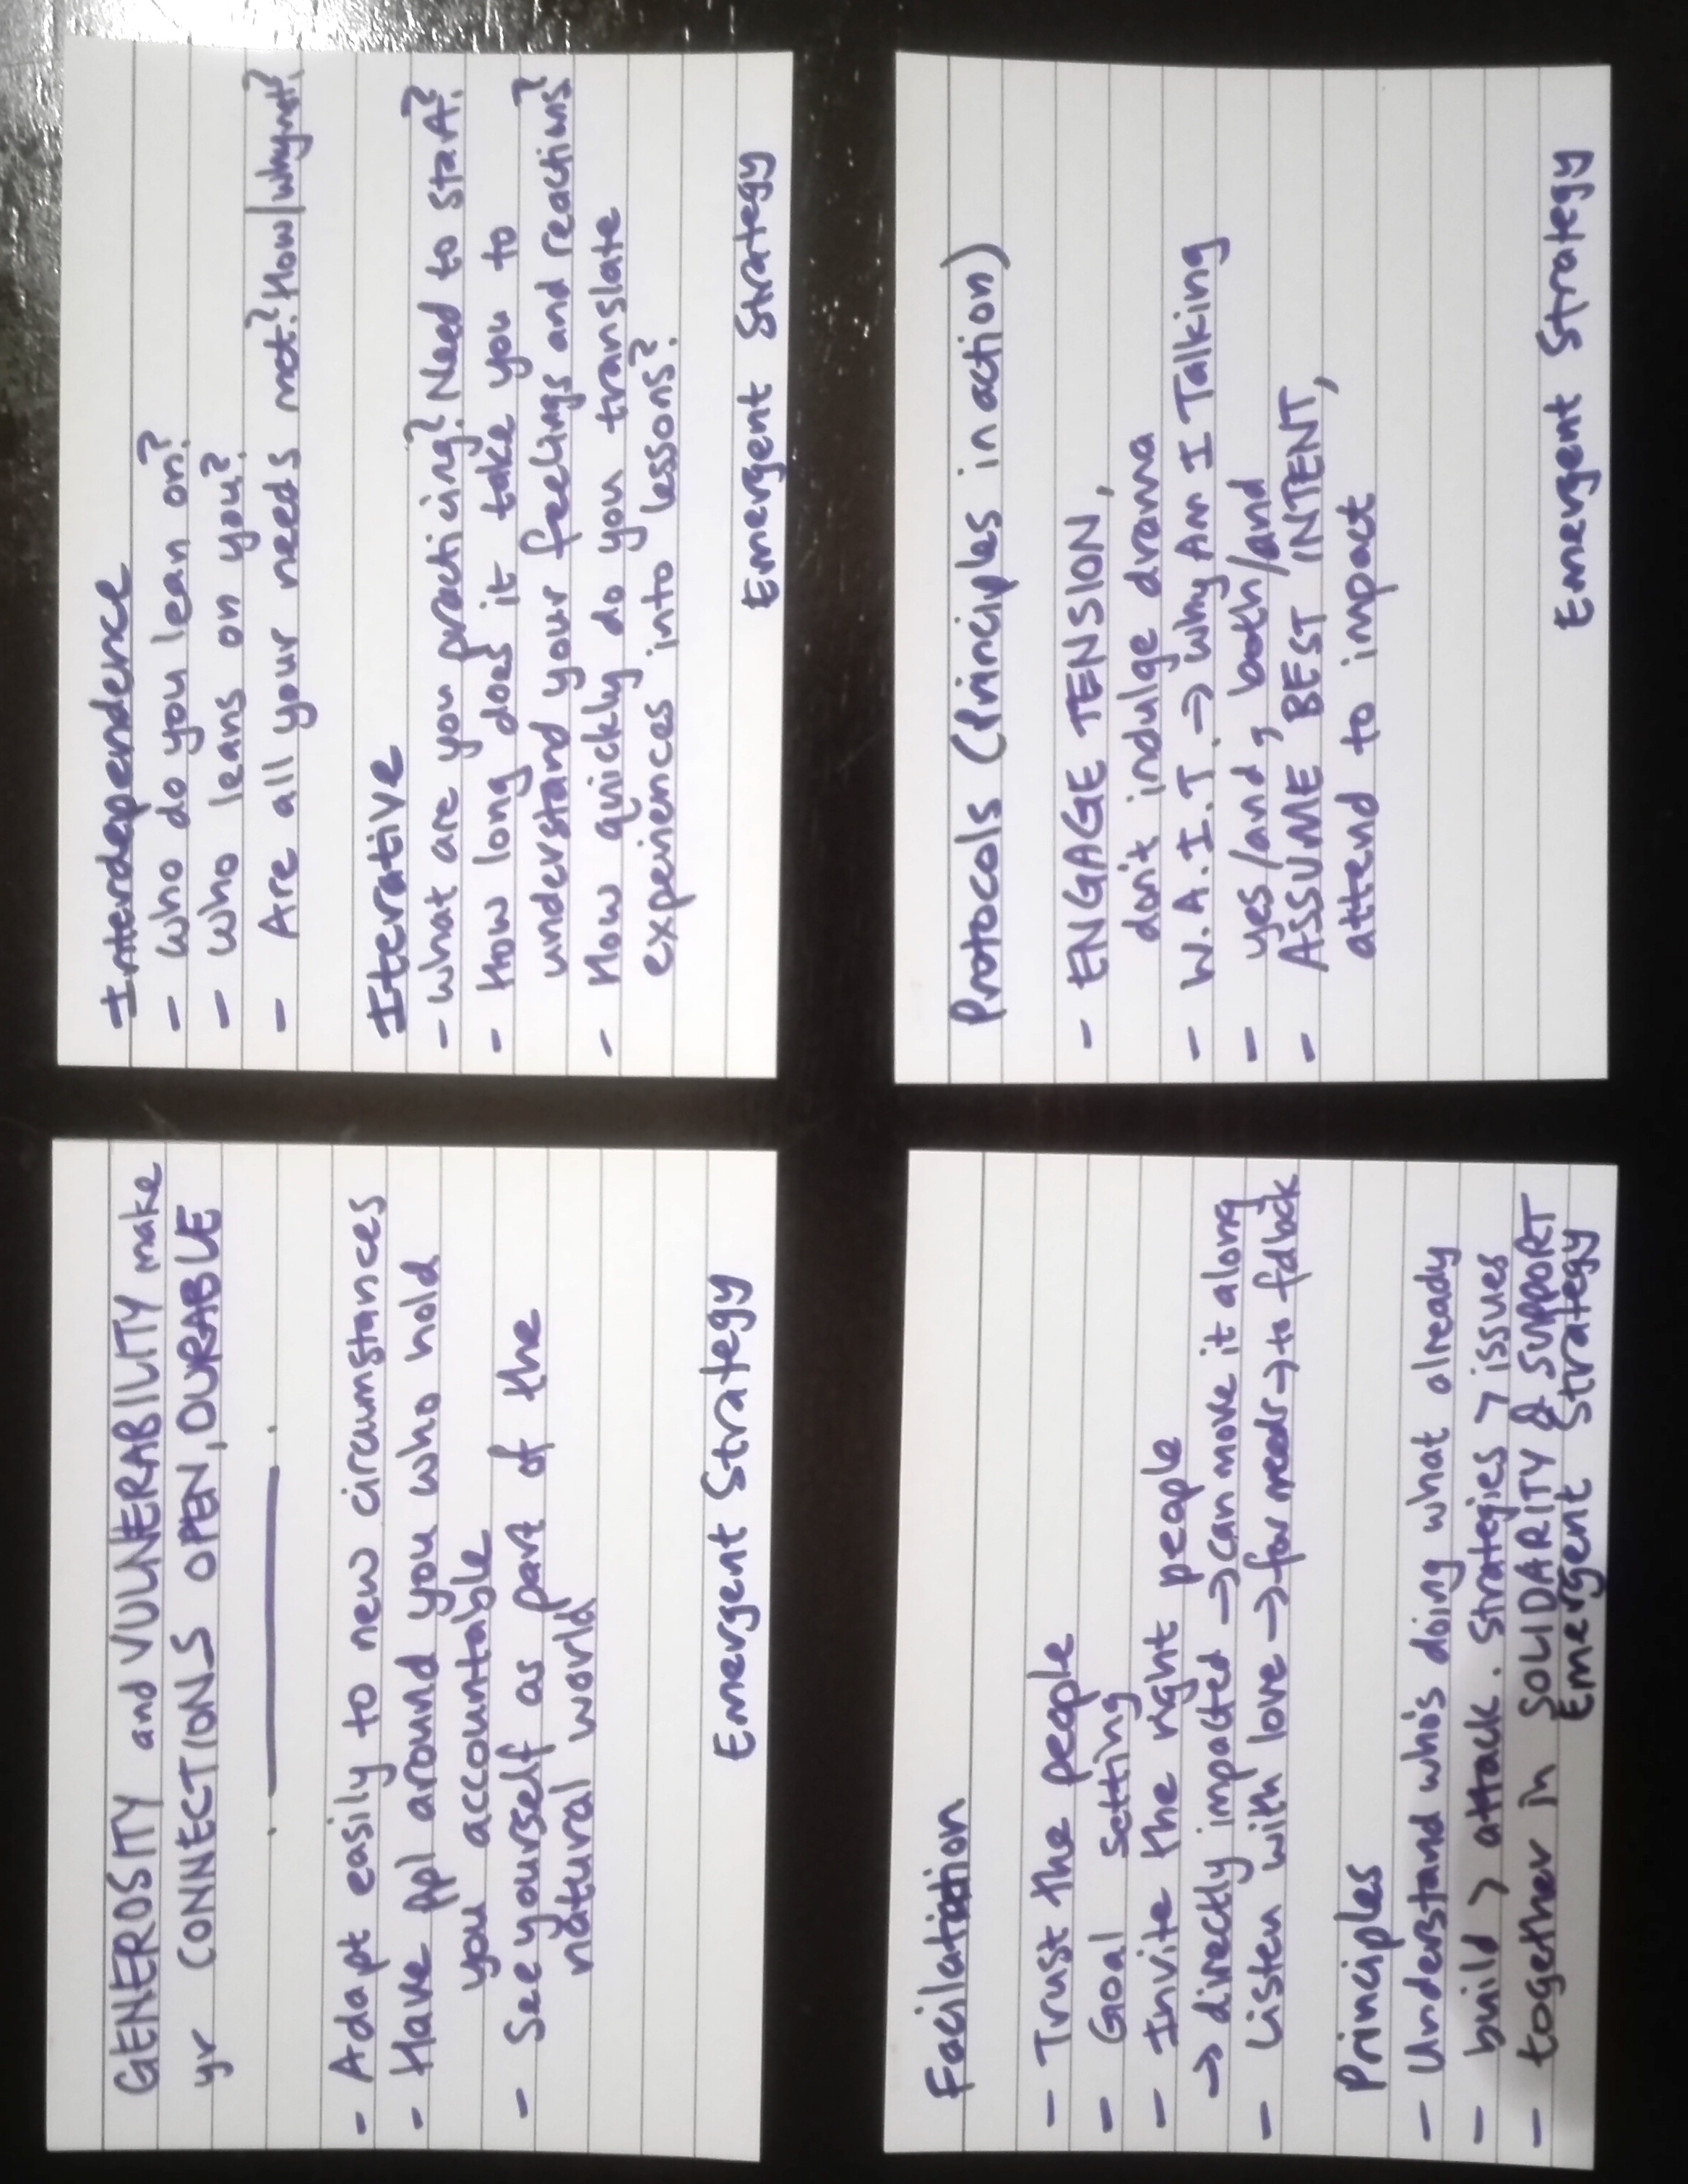 GENEROSITY and VULNERABILITY make
yr CONNECTIONS OPEN, DURABLE
- Adapt easily to new circumstances
- Have ppl around you who hold
you accountable
- See yourself as part of the
natural world
Emergent Strategy
Interdependence
- Who do you lean on?
- Who leans on you?
- Are all your needs met? How/why not?
Iterative
- What are you practicing? Need to start?
- How long does it take you to
understand your feelings and reactions?
- How quickly do you translate
experiences into lessons?
Emergent Strategy
Facilation
- Trust the people
- Goal setting
- Invite the right people
→ directly impacted → can move it along
- Listen with love → for needs → to fdbck
Principles
- Understand who's doing what already
- build > attack. strategies > issues
- together in SOLIDARITY & SUPPORT
Emergent Strategy
Protocols (Principles in action)
- ENGAGE TENSION,
don't indulge drama
- W.A.I.T. → Why Am I Talking
- yes/and, both/and
- ASSUME BEST INTENT,
attend to impact
Emergent Strategy